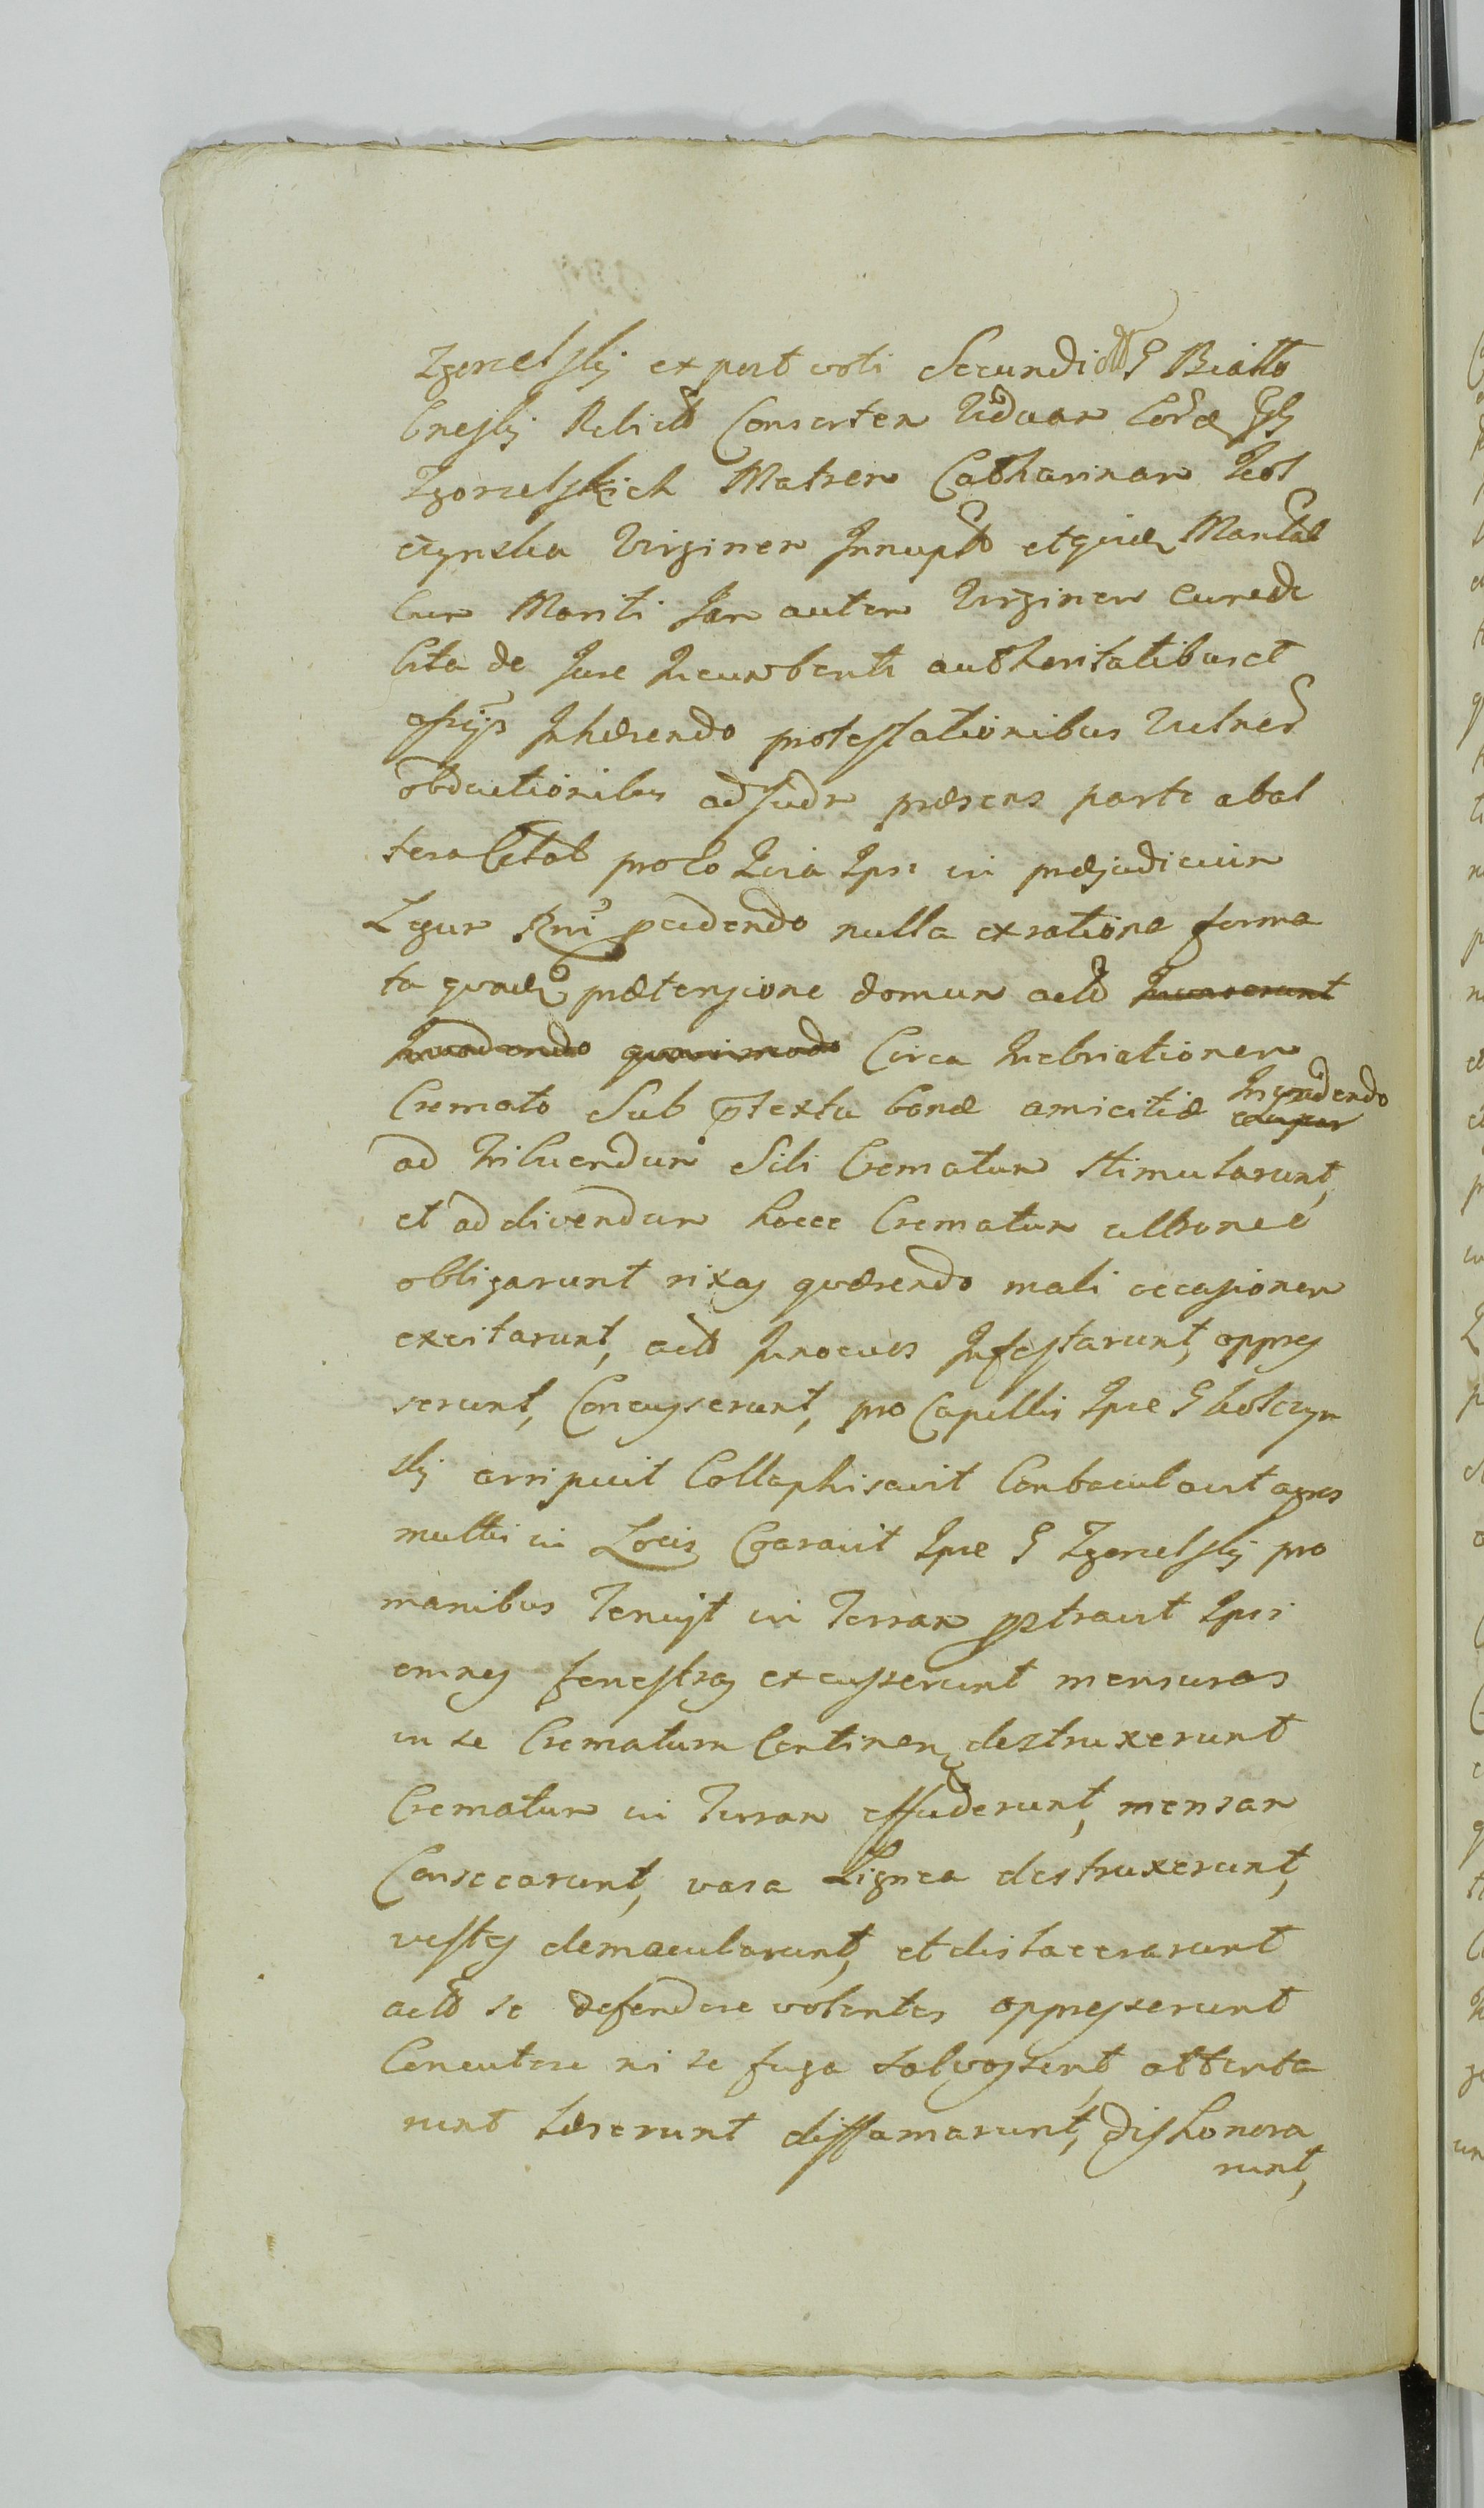 Zgorzelskj ex post voti Secundi G Biatto
brzeskj Relictd Consortem Viduam eordæ Gsk
Zgorzelskich Matrem Catharinam Kol
czynska Virginem Innuptd et quidem
cum Mariti Jam autem Virginem cum de
Cita de Jure Incumbenti authoritatibus et
assijs Inhærendo protestationibus Vulner
obductionibus ad Judr præsens parte ab al
tera Citat pro eo Quia Ipsi in præjudicium
Legum Rni procedendo nulla ex ratione forma
ta quavis prætensione domum actd Invaserunt
Invadendo quovismodo Circa Inebriationem
Cremato Sub prtextu bonæ amicitiæ Invadendo
ad Tribuendum Sibi Crematum stimularunt,
et ad divendum hocce Crematum ultronee
obligarunt rixas quærendo mali occasionem
excitarunt, actd Innocuos Infestarunt, oppres
serunt, Concusserunt, pro Capillis Ipse G Kolczyn
skj arripuit Collaphisavit Conbaculavit
multis in Locis Ipse G Zgorzelskj pro
manibus Tenuijt in Terram prstravit Ipsi
omnes fenestras excusserunt mensuras
in se Crematum Continen destruxerunt
Crematum in Terram effuderunt, mensam
Consecarunt, vasa Lignea destruxerunt,
vestes demacularunt, et dislacerarunt
actd se defendere volentes oppresserunt
Concutere ni se fuga salvassent, attenta
runt læserunt diffamarunt, dishonora
runt,